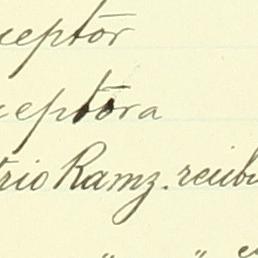 ceptor
ceptora
trio Ramz. recibi
" "